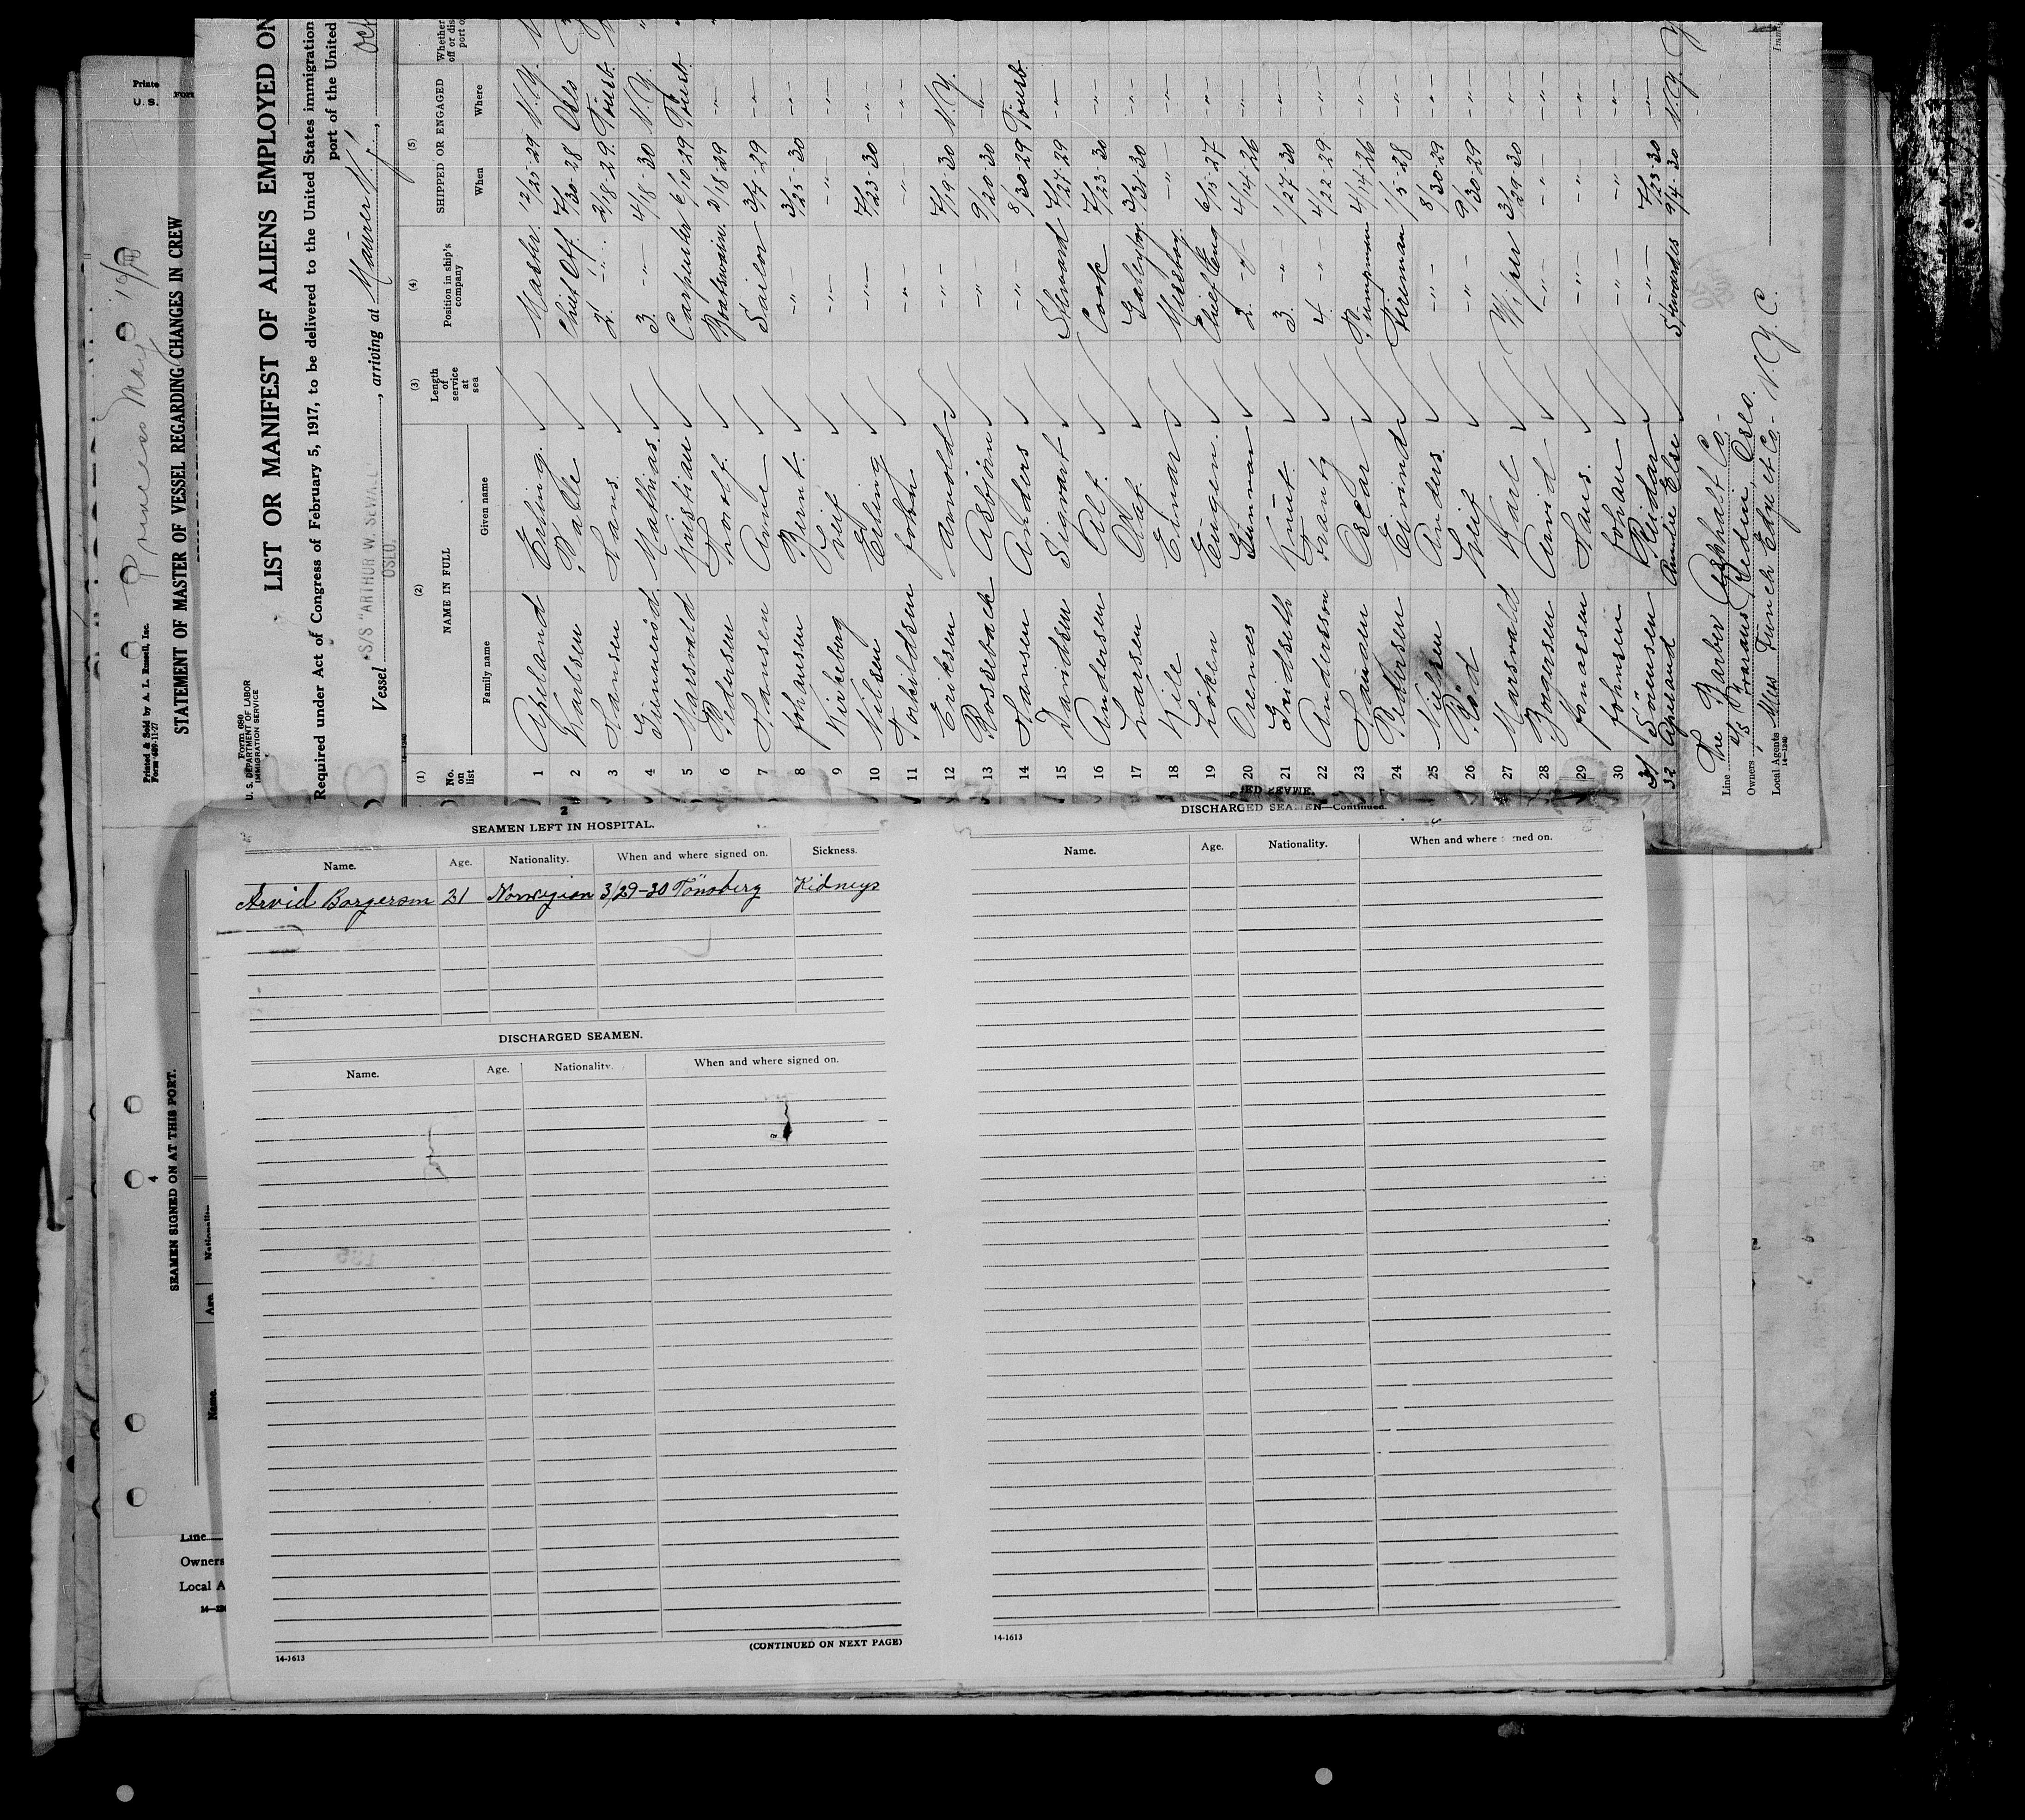 Printed & Sold by A. L. Russell, Inc.
Form 689-11-27
Princess May
STATEMENT OF MASTER OF VESSEL REGARDING CHANGES IN CREW
Form 680
U. S. DEPARTMENT OF LABOR
IMMIGRATION SERVICE
LIST OR MANIFEST OF ALIENS EMPLOYED ON
Required under Act of Congress of February 5, 1917, to be delivered to the United States immigration
port of the United
Vessel S/S "ARTHUR W. SEWALL" OSLO, arriving at Maurer N.J.,
(1) (2) (3) (4) (5)
No. on list NAME IN FULL Length of service at sea Position in ship's company SHIPPED OR ENGAGED
Family name Given name When Where
1 Apeland Erling. Master. 12/25-29 N.Y.
2 Karlsen Palle Chief Off. 7/30-28 Oslo
3 Hansen Hans. 2. -"- 2/18-29 Tönsb.
4 Gunneröd Mathias. 3. -"- 4/8-30 N.Y.
5 Marsvald Kristian Carpenter 6/10-29 Tönsb.
6 Pedersen Thorlf. Boatswain. 2/18-29 -"-
7 Hansen Arne Sailor 3/7-29 -"-
8 Johansen Bernt. -"- 3/25-30 -"-
9 Kirkeberg Leif -"- -"- -"-
10 Nilsen Erling -"- 7/23-30 -"-
11 Torkildsen John -"- -"- -"-
12 Eriksen Arnold -"- 7/9-30 N.Y.
13 Rosseback Asbjörn -"- 9/20-30 -"-
14 Hansen Anders -"- 8/30-29 Tönsb.
15 Davidsen Sigvart Steward 7/27-29 -"-
16 Andersen Alf. Cook 7/23-30 -"-
17 Larsen Olaf. Galleyboy 3/31-30 -"-
18 Kile Einar Messboy. -"- -"-
19 Löken Eugen. Chief Eng 6/15-27 -"-
20 Orenæs Gunnar 2. -"- 4/14-26 -"-
21 Grudseth Knut. 3. -"- 1/27-30 -"-
22 Andersson Frantz 4. -"- 4/22-29 -"-
23 Haugen Oscar Pumpman 4/14-26 -"-
24 Pedersen Eivind Fireman 1/5-28 -"-
25 Nielsen Anders. -"- 8/30-29 -"-
26 Röd Leif -"- 9/30-29 -"-
27 Marsvald Karl Wiper 3/29-30 -"-
28 Borgersen Arvid -"- -"- -"-
29 Jonassen Hans. -"- -"- -"-
30 Johnsen Johan -"- -"- -"-
31 Sörensen Reidar -"- 7/23-30 -"-
32 Apeland Amdie Else Stewardes 9/4-30 N.Y.
Line The Barber Asphalt Co.
Owners
Local Agents Mess Funch Edye et Co. N.Y.C.
14-1240
4
SEAMEN SIGNED ON AT THIS PORT.
Name.
Line
Owners
Local A
2
SEAMEN LEFT IN HOSPITAL.
Name. Age. Nationality. When and where signed on. Sickness.
Arvid Borgersen 21 Norwegian 3/29-30 Tönsberg Kidneys
DISCHARGED SEAMEN.
Name. Age. Nationality. When and where signed on.
(CONTINUED ON NEXT PAGE)
14-1613
DISCHARGED SEAMEN—Continued.
Name. Age. Nationality. When and where signed on.
14-1613